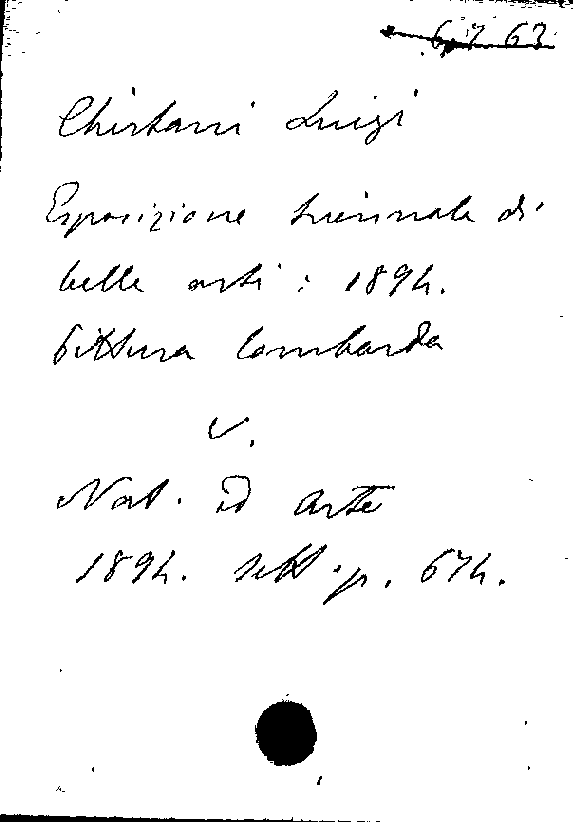 6,7 63
Chirtani Luigi
Esposizione triennale di
belle arti : 1894.
Pittura lombarda
v.
Nat. ed Arte
1894. sett. p. 674.